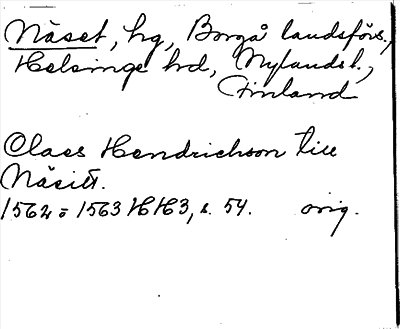 Näset, hg, Borgå landsförs.,
Helsinge hd, Nylands l.,
Finland
Claes Hendrichson till
Näsitt.
1562 = 1563 HH3, s. 54. orig.